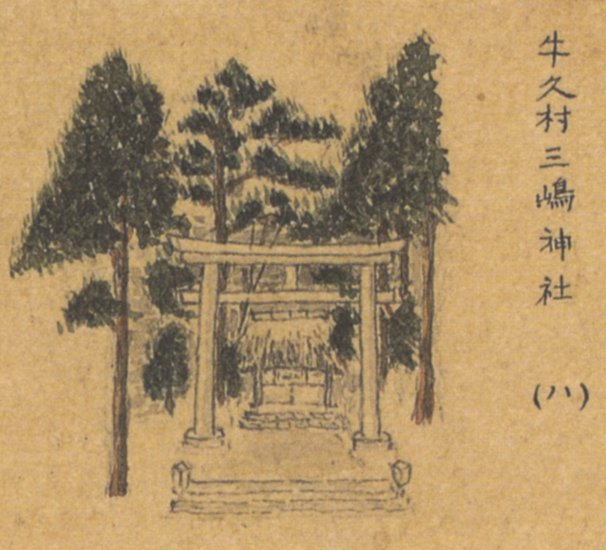 牛久村三嶋神社
(八)